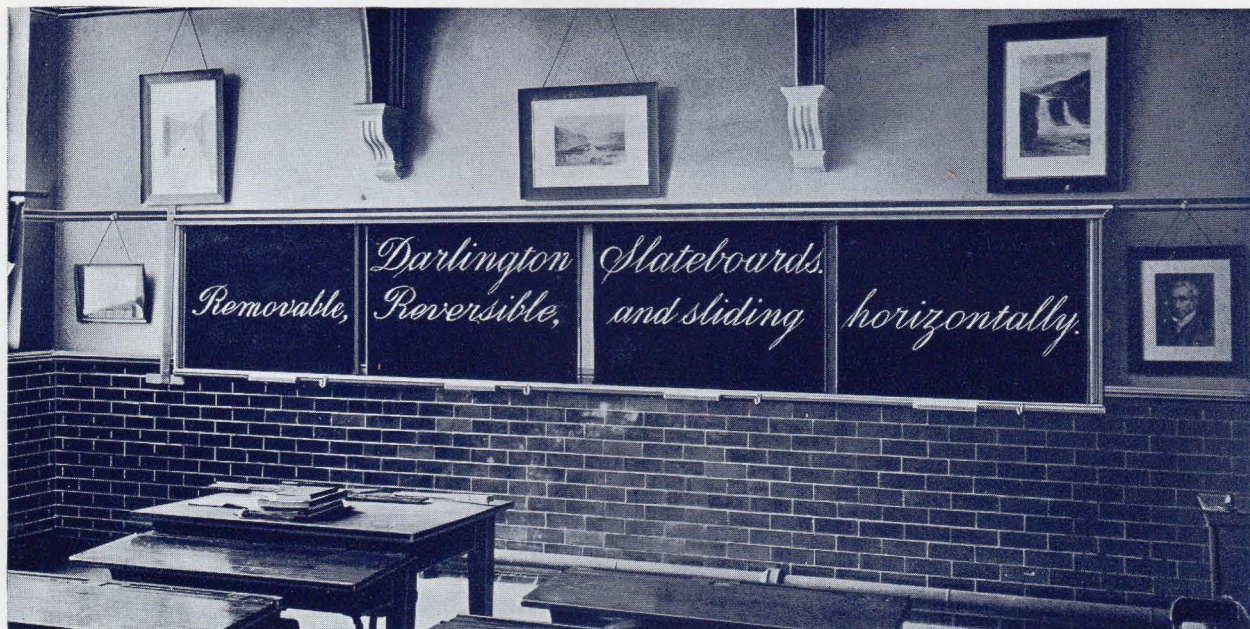 Darlington Slateboards.
Removable, Reversible, and sliding horizontally.